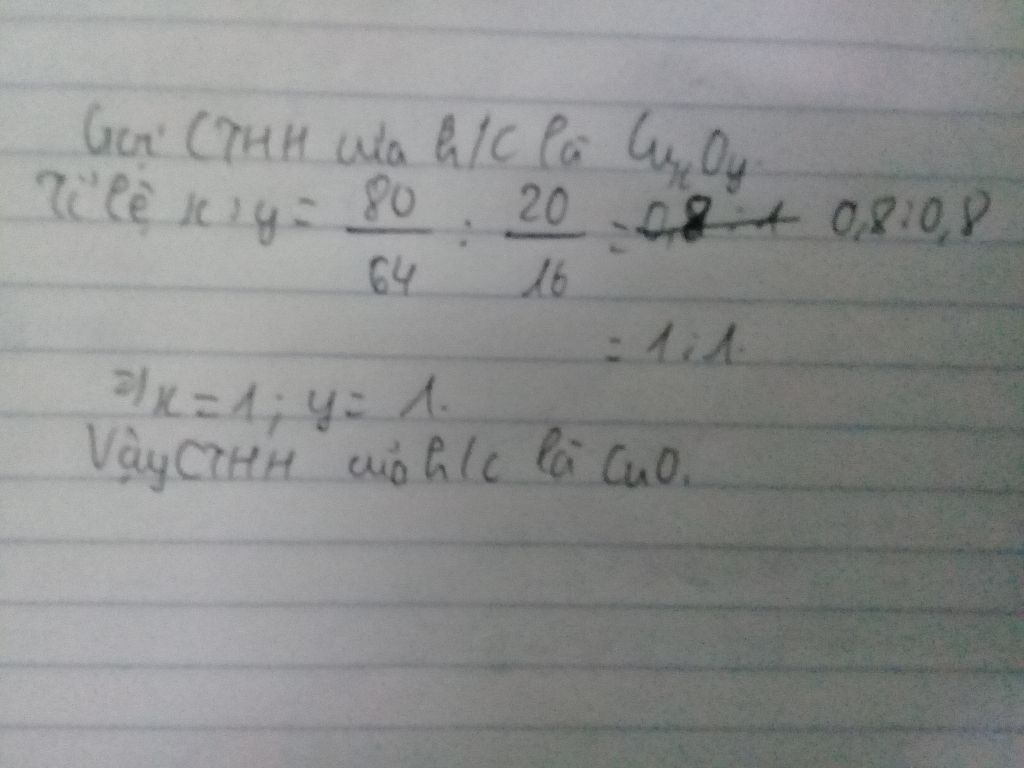 Gọi CTHH của h/c là CuxOy.
Tỉ lệ x : y = 80/64 : 20/16 = 0,8 : 0,8
= 1 : 1.
=> x = 1 ; y = 1.
Vậy CTHH của h/c là CuO.